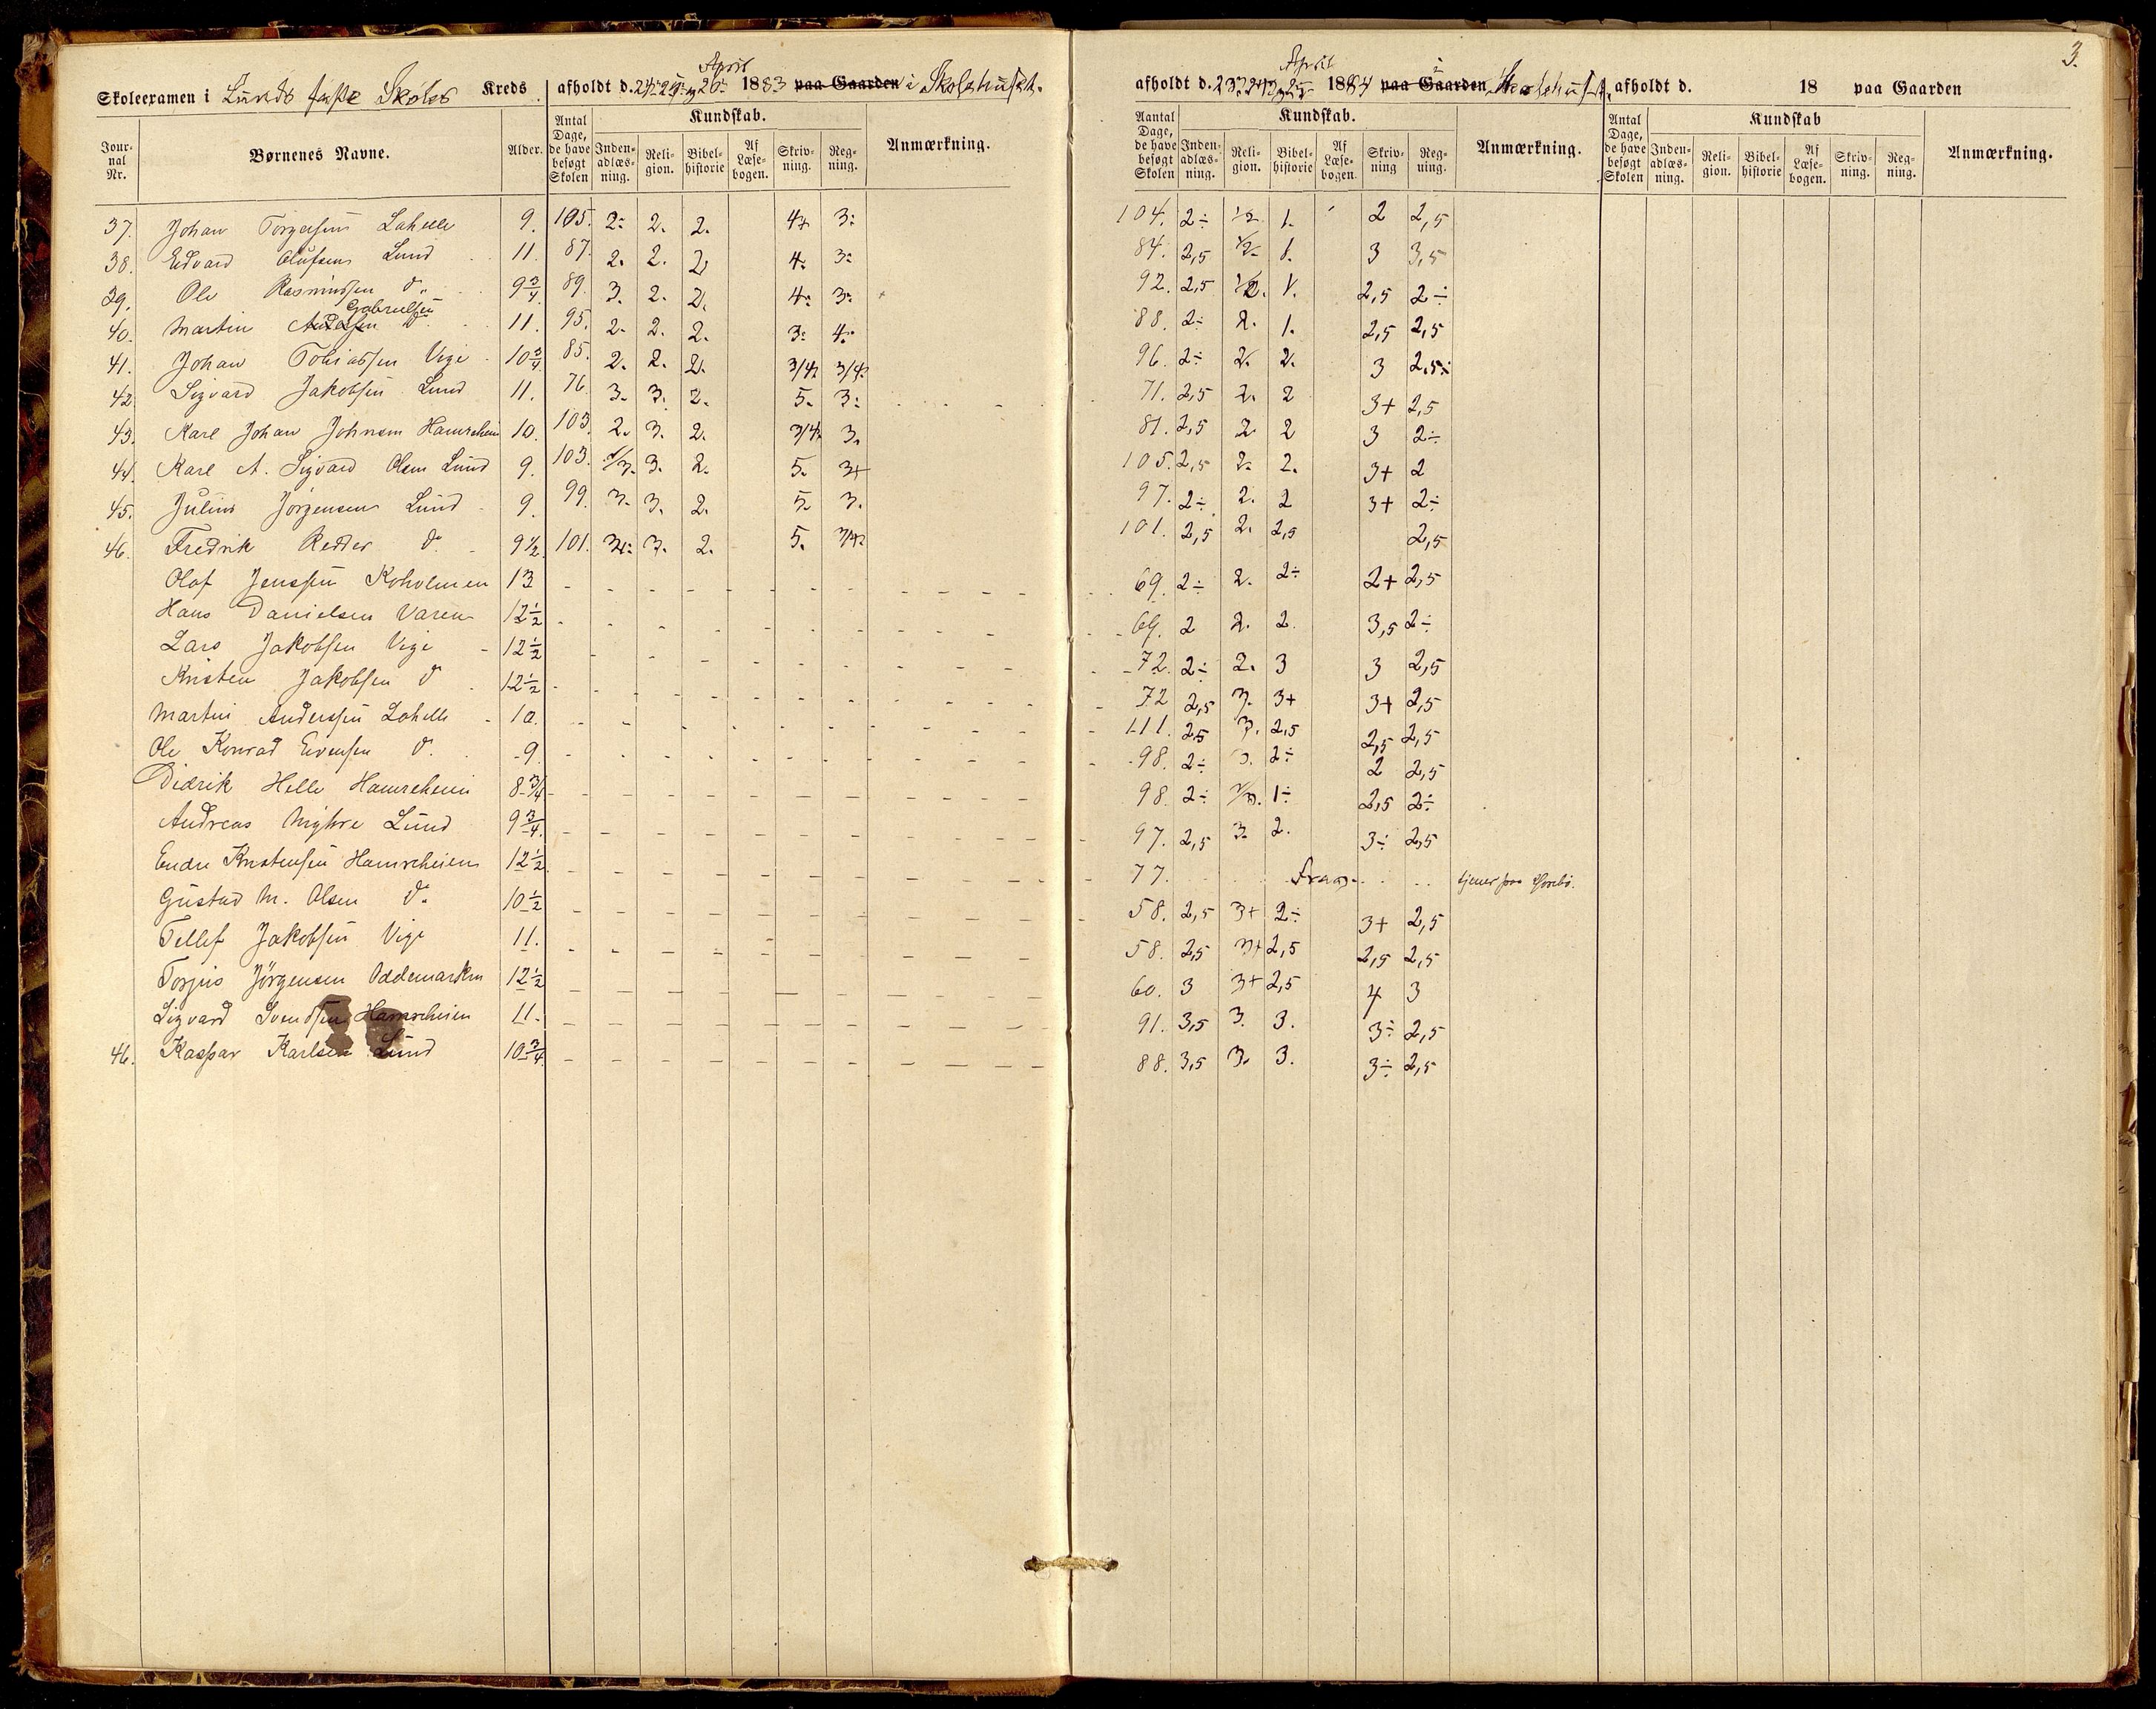 3.
Skoleexamen i Lunds faste Skoles Kreds afholdt d. 24. 25. og 26. April 1883 paa Gaarden i Skolehuset. afholdt d. 23. 24. og 25. April 1884 paa Gaarden i Skolehuset, afholdt d. 18 paa Gaarden
Jour-nal Nr. Børnenes Navne. Alder. Antal Dage, de have besøgt Skolen Kundskab. Inden-adlæs-ning. Reli-gion. Bibel-historie Af Læse-bogen. Skriv-ning. Reg-ning. Anmærkning. Aantal Dage, de have besøgt Skolen Kundskab. Inden-adlæs-ning. Reli-gion. Bibel-historie Af Læse-bogen. Skriv-ning Reg-ning. Anmærkning. Antal Dage, de have besøgt Skolen Kundskab Inden-adlæs-ning. Reli-gion. Bibel-historie Af Læse-bogen. Skriv-ning. Reg-ning. Anmærkning.
37. Johan Torgersen Lahelle 9. 105. 2÷ 2. 2. 4+ 3÷ 104. 2÷ 1/2. 1. 2 2,5
38. Edvard Olufsen Lund 11. 87. 2. 2. 2. 4. 3÷ 84. 2,5 1/2. 1. 3 3,5
39. Ole Rasmussen do. 9 3/4. 89. 3. 2. 2. 4÷ 3÷ 92. 2,5 1/2. 1. 2,5 2÷
40. Martin Gabrielsen do. 11. 95. 2. 2. 2. 3÷ 4. 88. 2÷ 2. 1. 2,5 2,5
41. Johan Tobiassen Vige 10 3/4 85. 2. 2. 2. 3/4. 3/4. 96. 2÷ 2. 2. 3 2,5÷
42. Sigvard Jakobsen Lund 11. 76. 3. 3. 2. 5. 3÷ 71. 2,5 2. 2 3+ 2,5
43. Karl Johan Johnsen Hamreheien 10. 103. 2. 3. 2. 3/4. 3. 81. 2,5 2 2 3 2÷
44. Karl A. Sigvard Olsen Lund 9. 103. 2/3. 3. 2. 5. 3+ 105. 2,5 2. 2. 3+ 2
45. Julius Jørgensen Lund 9. 99. 3. 3. 2. 5. 3. 97. 2÷ 2. 2 3+ 2÷
46. Fredrik Redder do. 9 1/2. 101. 3÷ 3. 2. 5. 3/4. 101. 2,5 2. 2,5 2,5
Olaf Jenssen Koholmen 13 69. 2÷ 2. 2÷ 2+ 2,5
Hans Danielsen Varen 12 1/2 69. 2 2. 2. 3,5 2÷
Lars Jakobsen Vige 12 1/2 72. 2÷ 2. 3 3 2,5
Kristen Jakobsen do 12 1/2 72 2,5 3. 3+ 3+ 2,5
Martin Anderssen Lahelle 10. 111. 2,5 3. 2,5 2,5 2,5
Ole Konrad Evensen do. 9. 98. 2÷ 3. 2÷ 2 2,5
Didrik Helle Hamreheien 8 3/4 98. 2÷ 2/3. 1÷ 2,5 2÷
Andreas Myhre Lund 9 3/4. 97. 2,5 3. 2. 3÷ 2,5
Endre Kristensen Hamreheien 12 1/2. 77. Frav.
Gustav M. Olsen do. 10 1/2 58. 2,5 3+ 2÷ 3+ 2,5
Tellef Jakobsen Vige 11. 58. 2,5 3+ 2,5 2,5 2,5
Torjus Jörgensen Oddemarken 12 1/2 60. 3 3+ 2,5 4 3
Sigvard Svendsen Hamreheien 11. 91. 3,5 3. 3. 3÷ 2,5
46. Kaspar Karlsen Lund 10 3/4 88. 3,5 3. 3. 3÷ 2,5